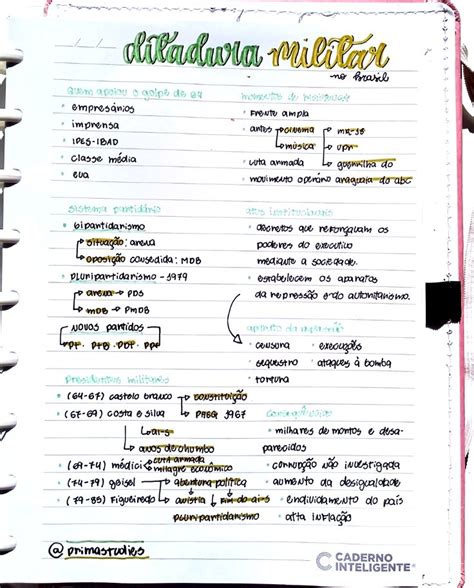 ditadura militar
no brasil
Quem apoiou o golpe de 64
• empresários
• imprensa
• IPES-IBAD
• classe média
• eua
momentos de
• Frente ampla
• antes → cinema → MR-8
→ música → VPR
• luta armada → guerrilha do
• movimento operário araguaia do abc
sistema partidário
• bipartidarismo
→ situação: arena
→ oposição consedida: MDB
• pluripartidarismo - 1979
→ arena → PDS
→ MDB → PMDB
NOVOS partidos
PT · PTB · PDT
atos institucionais
• decretos que reforçavam os
poderes do executivo
mediante a sociedade.
• estabelecem os aparatos
da repressão e do autoritarismo.
aparato da repressão
• censura • execuções
• sequestro • ataques à bomba
• tortura
Presidentes militares
• (64-67) castelo branco → constituição
• (67-69) costa e silva → 1967
→ ai-5
→ anos de chumbo
• (69-74) médici → luta armada
→ milagre econômico
• (74-79) geisel → abertura política
• (79-85) Figueiredo → anistia → fim do ai-5
pluripartidarismo
consequências
• milhares de mortos e desa-
parecidos
• corrupção não investigada
• aumento da desigualdade
• endividamento do país
• alta inflação
@primastudies
CADERNO
INTELIGENTE®